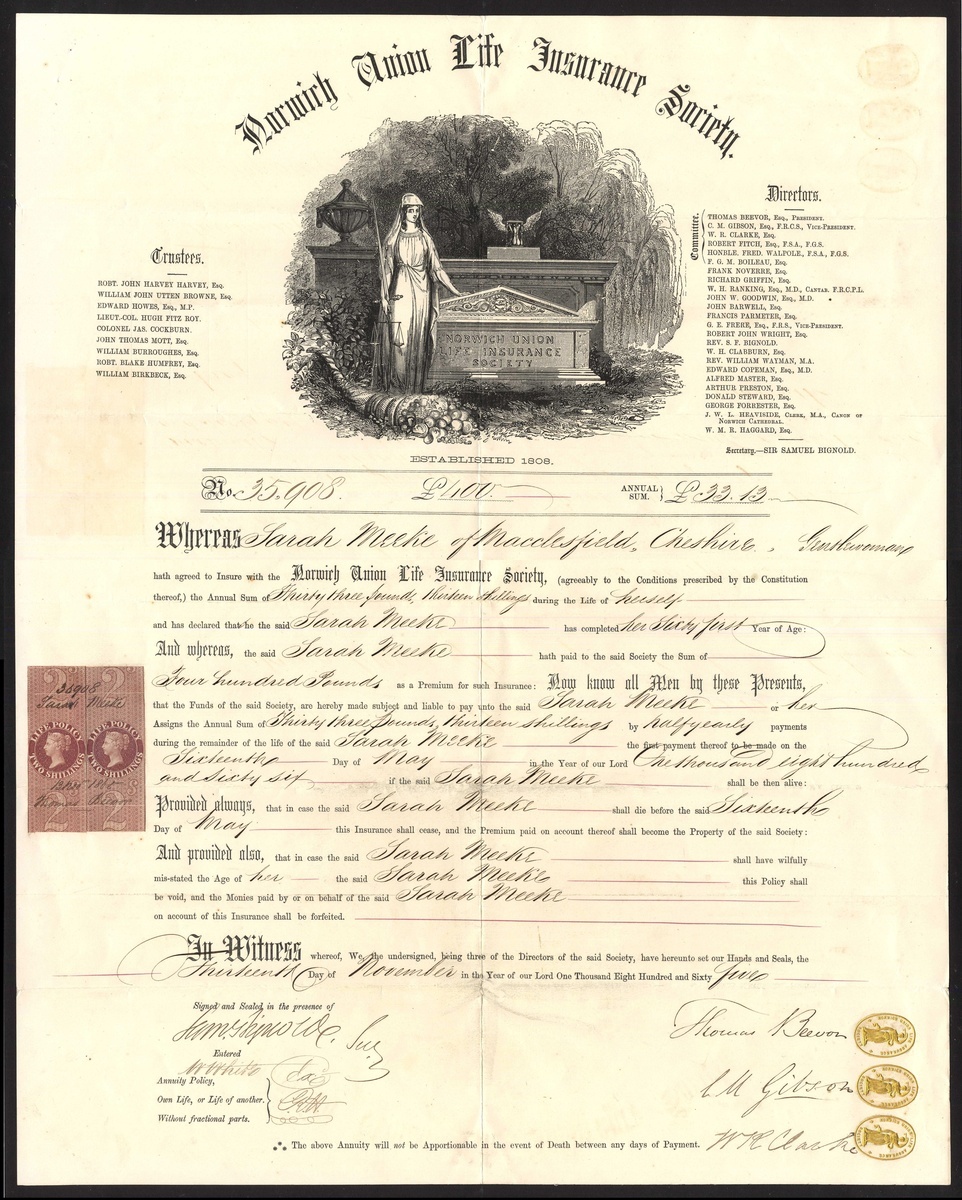 Norwich Union Life Insurance Society.
Trustees.
ROBT. JOHN HARVEY HARVEY, Esq.
WILLIAM JOHN UTTEN BROWNE, Esq.
EDWARD HOWES, Esq., M.P.
LIEUT.-COL. HUGH FITZ ROY.
COLONEL JAS. COCKBURN.
JOHN THOMAS MOTT, Esq.
WILLIAM BURROUGHES, Esq.
ROBT. BLAKE HUMFREY, Esq.
WILLIAM BIRKBECK, Esq.
NORWICH UNION
LIFE INSURANCE
SOCIETY
Directors.
Committee.
THOMAS BEEVOR, Esq., President.
C. M. GIBSON, Esq., F.R.C.S., Vice-President.
W. R. CLARKE, Esq.
ROBERT FITCH, Esq., F.S.A., F.G.S.
HONBLE. FRED. WALPOLE, F.S.A., F.G.S.
F. G. M. BOILEAU, Esq.
FRANK NOVERRE, Esq.
RICHARD GRIFFIN, Esq.
W. H. RANKING, Esq., M.D., Cantab. F.R.C.P.L.
JOHN W. GOODWIN, Esq., M.D.
JOHN BARWELL, Esq.
FRANCIS PARMETER, Esq.
G. E. FRERE, Esq., F.R.S., Vice-President.
ROBERT JOHN WRIGHT, Esq.
REV. S. F. BIGNOLD.
W. H. CLABBURN, Esq.
REV. WILLIAM WAYMAN, M.A.
EDWARD COPEMAN, Esq., M.D.
ALFRED MASTER, Esq.
ARTHUR PRESTON, Esq.
DONALD STEWARD, Esq.
GEORGE FORRESTER, Esq.
J. W. L. HEAVISIDE, Clerk, M.A., Canon of
Norwich Cathedral.
W. M. R. HAGGARD, Esq.
Secretary.—SIR SAMUEL BIGNOLD.
ESTABLISHED 1808.
No. 35,908. £400. ANNUAL SUM. } £33.13
Whereas Sarah Meeke of Macclesfield, Cheshire, Gentlewoman
hath agreed to Insure with the Norwich Union Life Insurance Society, (agreeably to the Conditions prescribed by the Constitution
thereof,) the Annual Sum of Thirty three pounds, thirteen shillings during the Life of herself
and has declared that he the said Sarah Meeke has completed her Sixty first Year of Age:
And whereas, the said Sarah Meeke hath paid to the said Society the Sum of
Four hundred Pounds as a Premium for such Insurance: Now know all Men by these Presents,
that the Funds of the said Society, are hereby made subject and liable to pay unto the said Sarah Meeke or her
Assigns the Annual Sum of Thirty three pounds, thirteen shillings by halfyearly payments
during the remainder of the life of the said Sarah Meeke the first payment thereof to be made on the
Sixteenth Day of May in the Year of our Lord One thousand eight hundred
and sixty six if the said Sarah Meeke shall be then alive:
Provided always, that in case the said Sarah Meeke shall die before the said Sixteenth
Day of May this Insurance shall cease, and the Premium paid on account thereof shall become the Property of the said Society:
And provided also, that in case the said Sarah Meeke shall have wilfully
mis-stated the Age of her the said Sarah Meeke this Policy shall
be void, and the Monies paid by or on behalf of the said Sarah Meeke
on account of this Insurance shall be forfeited.
In Witness whereof, We, the undersigned, being three of the Directors of the said Society, have hereunto set our Hands and Seals, the
Thirteenth Day of November in the Year of our Lord One Thousand Eight Hundred and Sixty five
35908
Sarah Meeke
LIFE POLICY LIFE POLICY
TWO SHILLINGS TWO SHILLINGS
Thomas Beevor
2 2
Signed and Sealed in the presence of
Saml Bignold Secy
Entered
W White
Annuity Policy,
Own Life, or Life of another.
Without fractional parts.
Thomas Beevor
C M Gibson
W R Clarke
⁂ The above Annuity will not be Apportionable in the event of Death between any days of Payment.